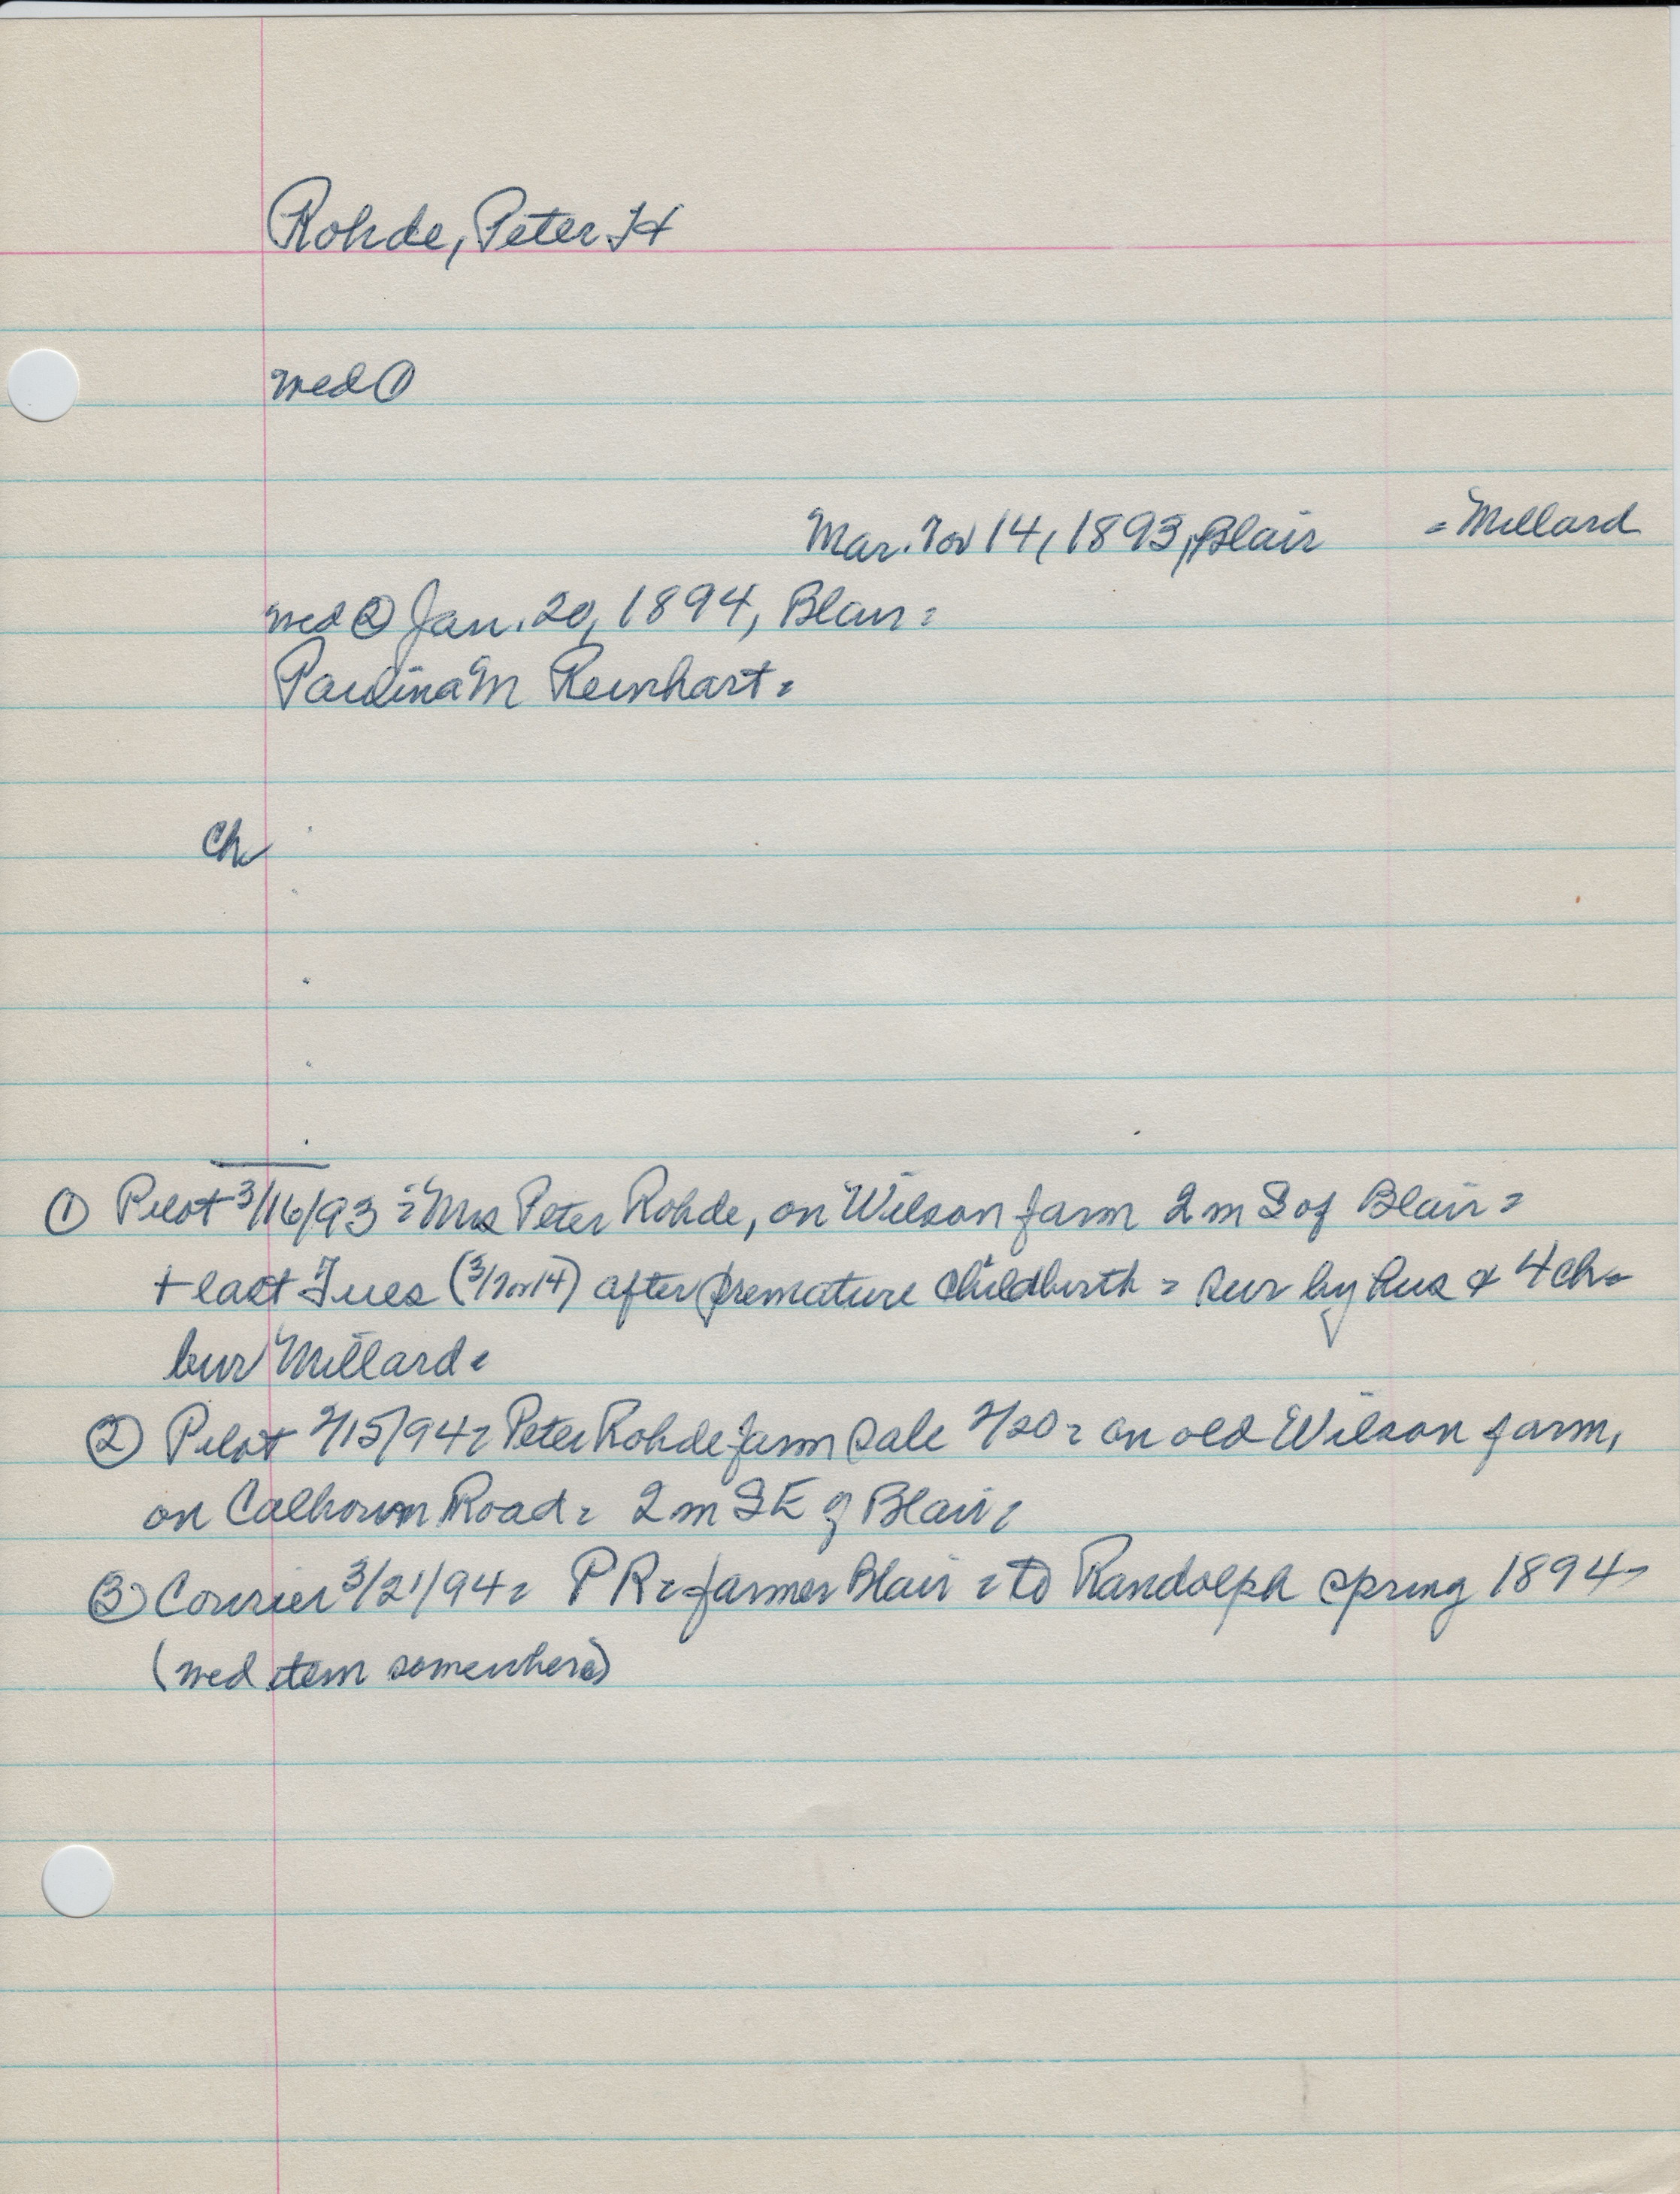 Rohde, Peter H
wed ①
Mar. 7 or 14, 1893, Blair = Millard
wed ② Jan. 20, 1894, Blair =
Paulina M Reinhart =
Ch
① Pilot 3/16/93 = Mrs Peter Rohde, on Wilson farm 2 m S of Blair =
+ last Tues (3/7 or 14) after premature childbirth = sur by hus & 4 ch =
bur Millard =
② Pilot 2/15/94 = Peter Rohde farm sale 2/20 = on old Wilson farm,
on Calhoun Road = 2 m SE of Blair =
③ Courier 3/21/94 = P R = farmer Blair = to Randolph spring 1894 =
(wed item somewhere)